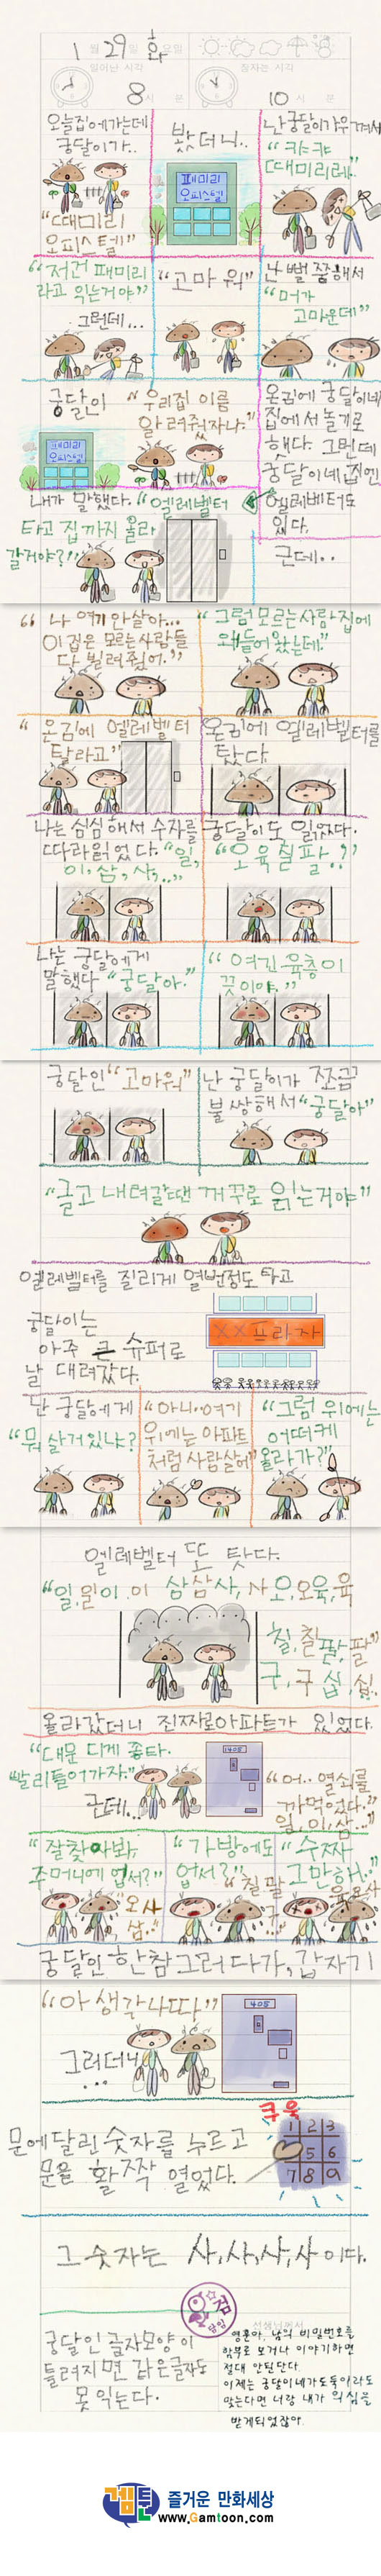 1월 29일 화요일
일어난 시각
잠자는 시각
8시 분
10시 분
오늘집에가는데
궁달이가..
"때미리
오피스텔"
봤더니..
패미리
오피스텔
난 궁달이가웃겨서
"캬캬
때미리레."
"저건 패미리
라고 읽는거야"
그런데...
"고마워"
난 벌쭘해서
"머가
고마운데"
궁달인
"우리집 이름
알려줬자나."
패미리
오피스텔
온김에 궁달이네
집에서 놀기로
했다. 그런데
궁달이네 집엔
엘레베터도
있다.
근데..
내가 말했다. "엘레벨터
타고 집까지 올라
갈거야?"
"나 여기 안살아...
이집은 모르는사람들
다 빌려줬어."
"그럼 모르는 사람 집에
왜들어 왔는데."
"온김에 엘레벨터
탈라고"
온김에 엘레벨터를
탔다.
나는 심심해서 숫자를
따라읽었다. "일,
이, 삼, 사,...
궁달이도 읽었다.
"오육칠팔.?"
나는 궁달에게
말했다 "궁달아."
"여긴 육층이
끗이야."
궁달인 "고마워"
난 궁달이가 쪼금
불쌍해서 "궁달아"
"글고 내려갈땐 꺼꾸로 읽는거야"
엘레벨터를 질리게 열번정도 타고
궁달이는
아주 큰 슈퍼로
날 대려갔다.
XX프라자
난 궁달에게
"뭐 살거있냐?
"아니..여기
위에는 아파트
처럼 사람살어"
"그럼 위에는
어떠케
올라가?"
엘레벨터 또 탓다.
"일,일이.이 삼삼사,사오,오육,육
칠,칠팔,팔"
구,구 십,십.
올라갔더니 진짜로아파트가 있었다.
"대문 디게 좋타.
빨리들어가자."
근데...
1405
"어.. 열쇠를
까먹었다."
일,이,삼..."
"잘찾아봐.
주머니에 업서?"
오사
삼."
"가방에도
업서?"
"칠팔
구..."
"숫짜
그만해."
궁달인 한참그러다가, 갑자기
"아 생각나따"
그러더니
...
405
문에달린 숫자를 누르고
문을 활짝 열었다.
쿠욱
1 2 3
5 6
7 8 9
그 숫자는 사,사,사,사이다.
참
담임
선생님께서
궁달인 글자모양이
틀려지면 같은글자도
못 익는다.
영훈아, 남의 비밀번호를
함부로 보거나 이야기하면
절대 안된단다.
이제는 궁달이네가도둑이라도
맞는다면 너랑 내가 의심을
받게되었잖아.
겜툰 즐거운 만화세상
www.Gamtoon.com